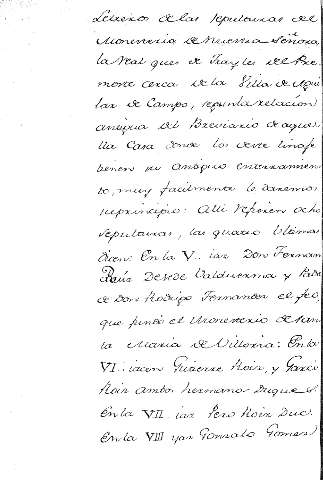 Letreros de las sepulturas del
Monesterio de Nuestra Señora
la Real ques de frayles del Pre
monte cerca de la Villa de Agui
lar de Campo, segunla relacion
antigua del Breviario de aques
lla Casa donde los deste linaje
tienen su antiguo enterramien
to, muy facilmente le daremos
suprincipio: Alli refieren ocho
sepulturas, las quatro ultimas
dicen: En la V.. iaz Don Fernan
Ruiz Desede Valduerma y
de Don Rodrigo Fernandez el feo,
que fundó el Monesterio de San
ta Maria de Villoria: En la
VI.. iacen Gutierre Roiz, y Garci
Roiz ambos hermanos Duques.
En la VII iaz Pero Roiz Duc.
En la VIII yaz Gonzalo Gomez